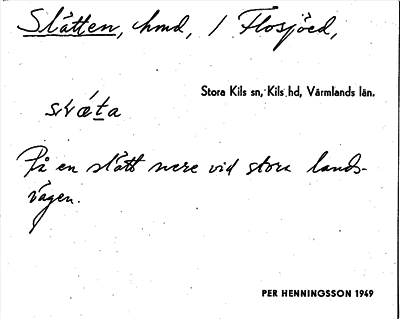 Slätten, hmd, i Flosjöed,
Stora Kils sn, Kils hd, Värmlands län.
På en slätt nere vid stora lands-
vägen.
PER HENNINGSSON 1949